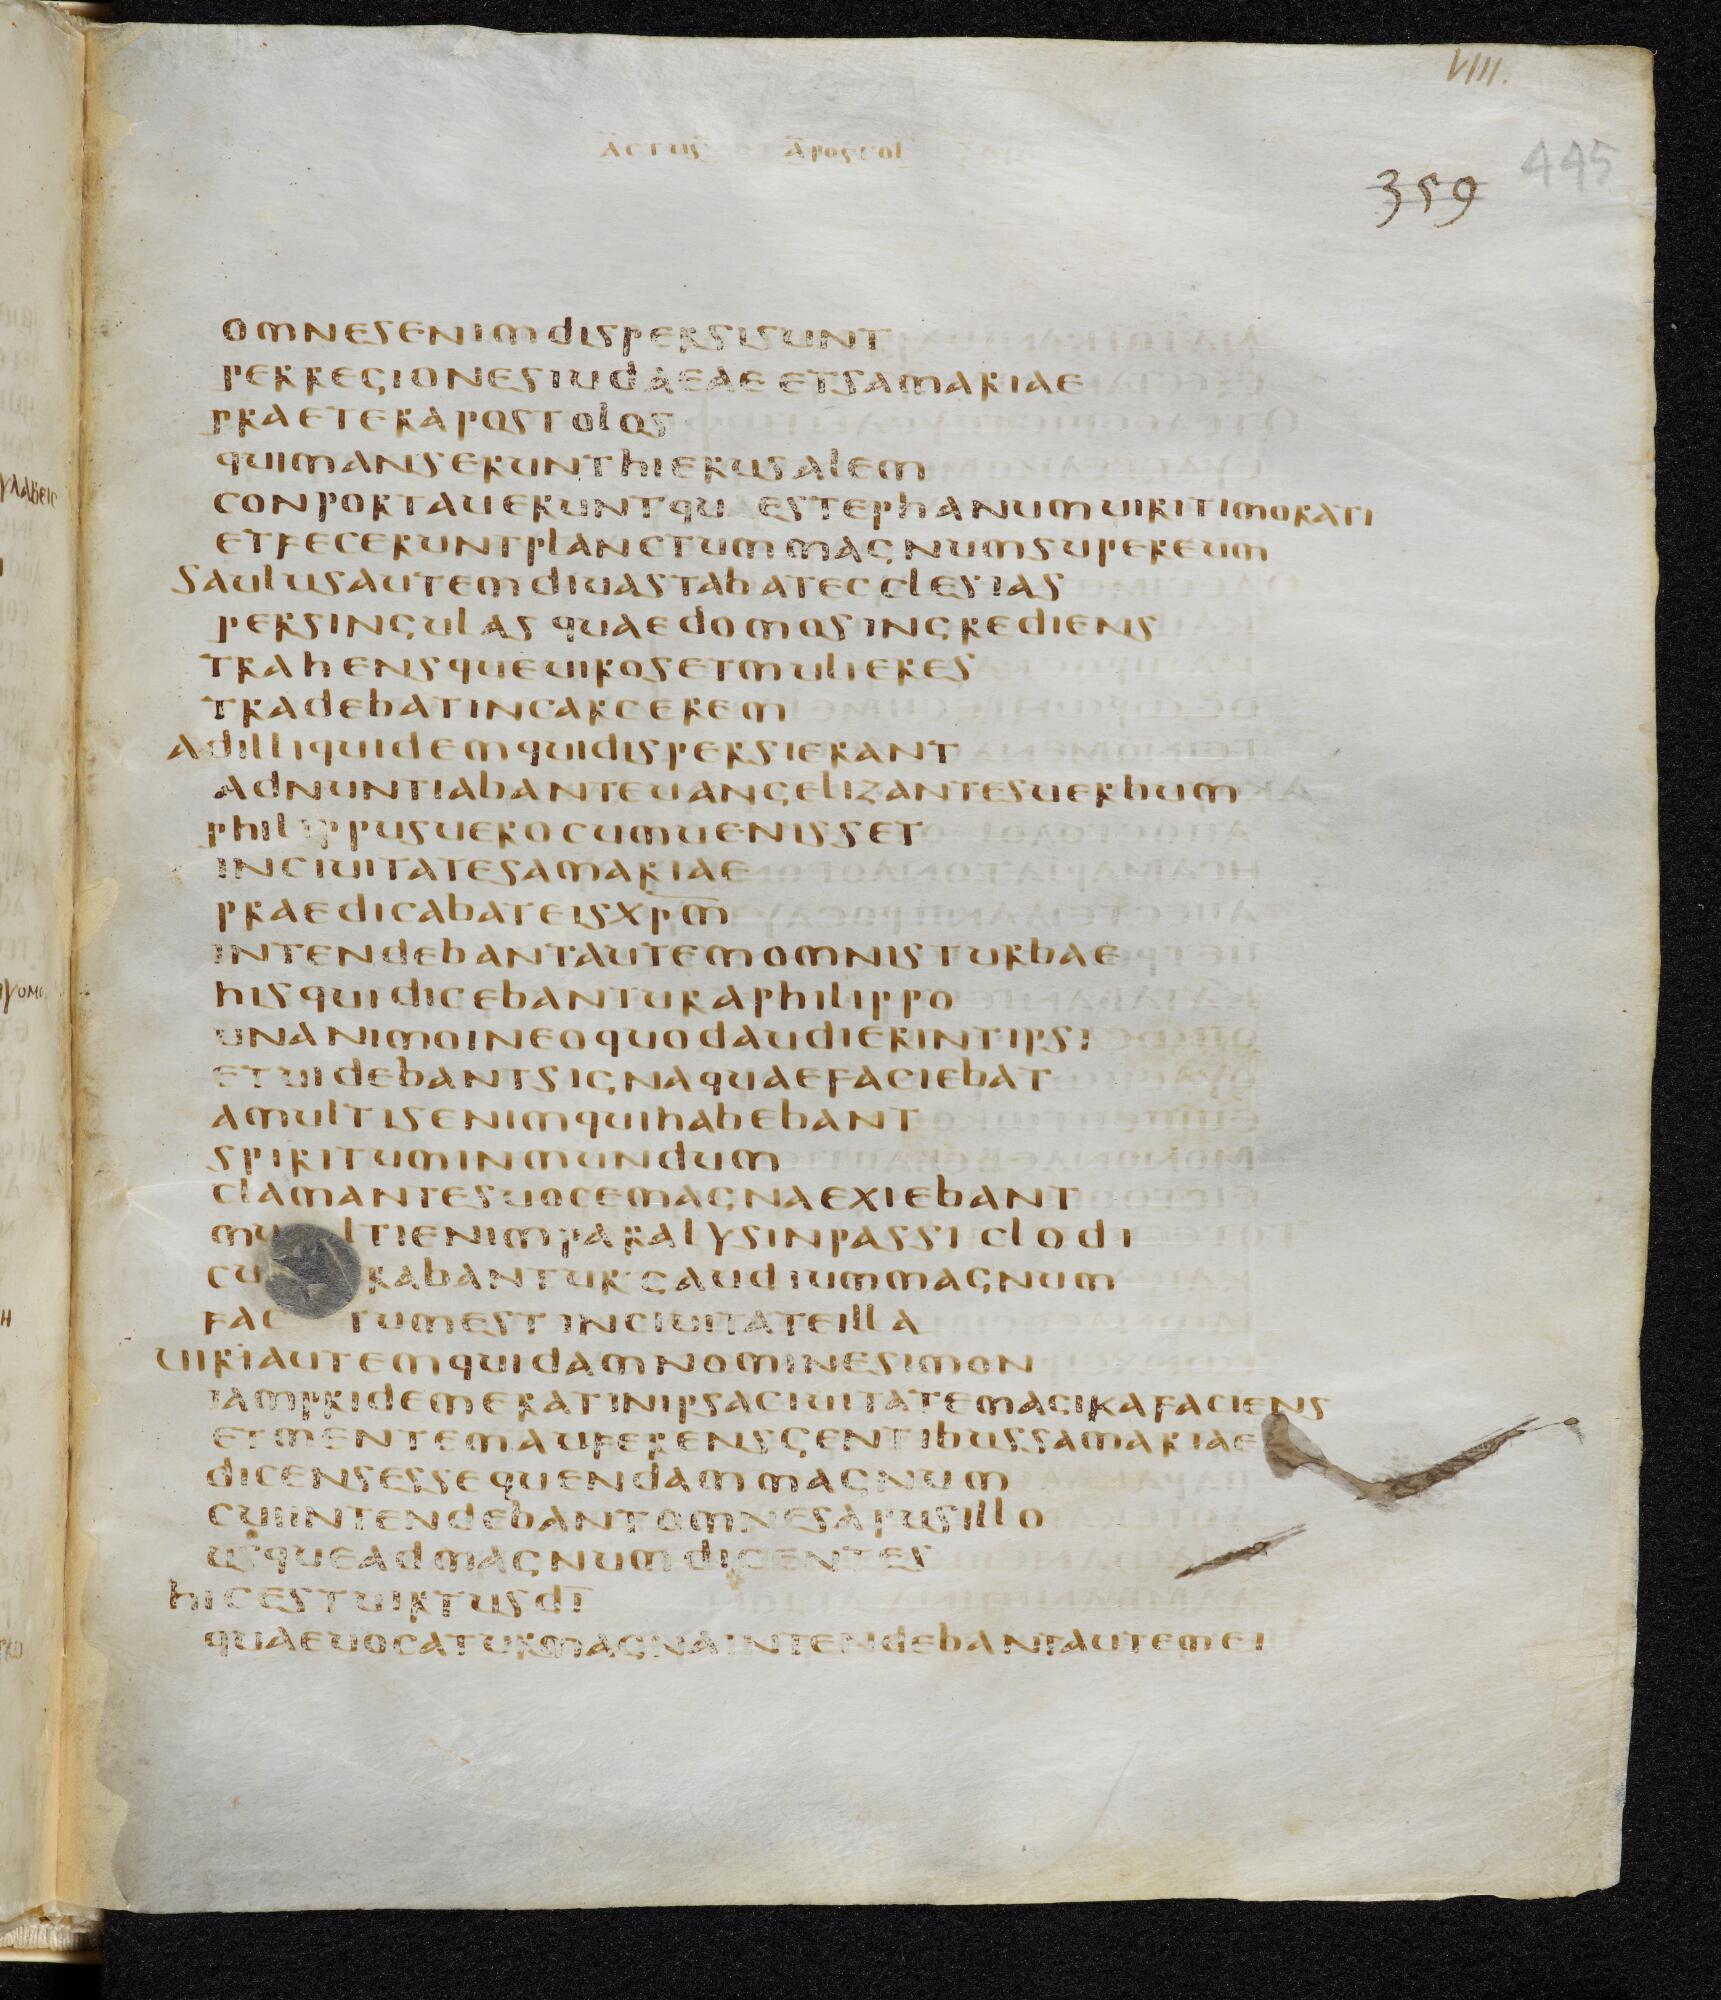 VIII.
ACTUS APOSTOL
445
359
OMNESENIMDISPERSISUNT
PERREGIONESIUDAEAE ETSAMARIAE
PRAETERAPOSTOLOS
QUIMANSERUNTHIERUSALEM
CONPORTAUERUNTQU ESTEPHANUMUIRITIMORATI
ETFECERUNTPLANCTUMMAGNUMSUPEREUM
SAULUSAUTEMDIUASTABATECCLESIAS
PERSINGULAS QUAEDOMOSINGREDIENS
TRAHENSQUEUIROSETMULIERES
TRADEBATINCARCEREM
ADILLIQUIDEMQUIDISPERSIERANT
ADNUNTIABANTEUANGELIZANTESUERBUM
PHILIPPUSUEROCUMUENISSET
INCIUITATESAMARIAE
PRAEDICABATEISXPM̅
INTENDEBANTAUTEMOMNISTURBAE
HISQUIDICEBANTURAPHILIPPO
UNANIMOINEOQUODAUDIERINTIPSI
ETUIDEBANTSIGNAQUAEFACIEBAT
AMULTISENIMQUIHABEBANT
SPIRITUMINMUNDUM
CLAMANTESUOCEMAGNAEXIEBANT
MU LTIENIMPARALYSINPASSI CLODI
CU RABANTUR·GAUDIUMMAGNUM
FAC TUMESTINCIUITATEILLA
UIRIAUTEMQUIDAMNOMINESIMON
IAMPRIDEMERATINIPSACIUITATEMAGIKAFACIENS
ETMENTEMAUFERENSGENTIBUSSAMARIAE
DICENSESSEQUENDAMMAGNUM
CUIINTENDEBANTOMNESAPUSILLO
USQUEADMAGNUMDICENTES
HICESTUIRTUSDI̅
QUAEUOCATURMAGNAINTENDEBANTAUTEMEI